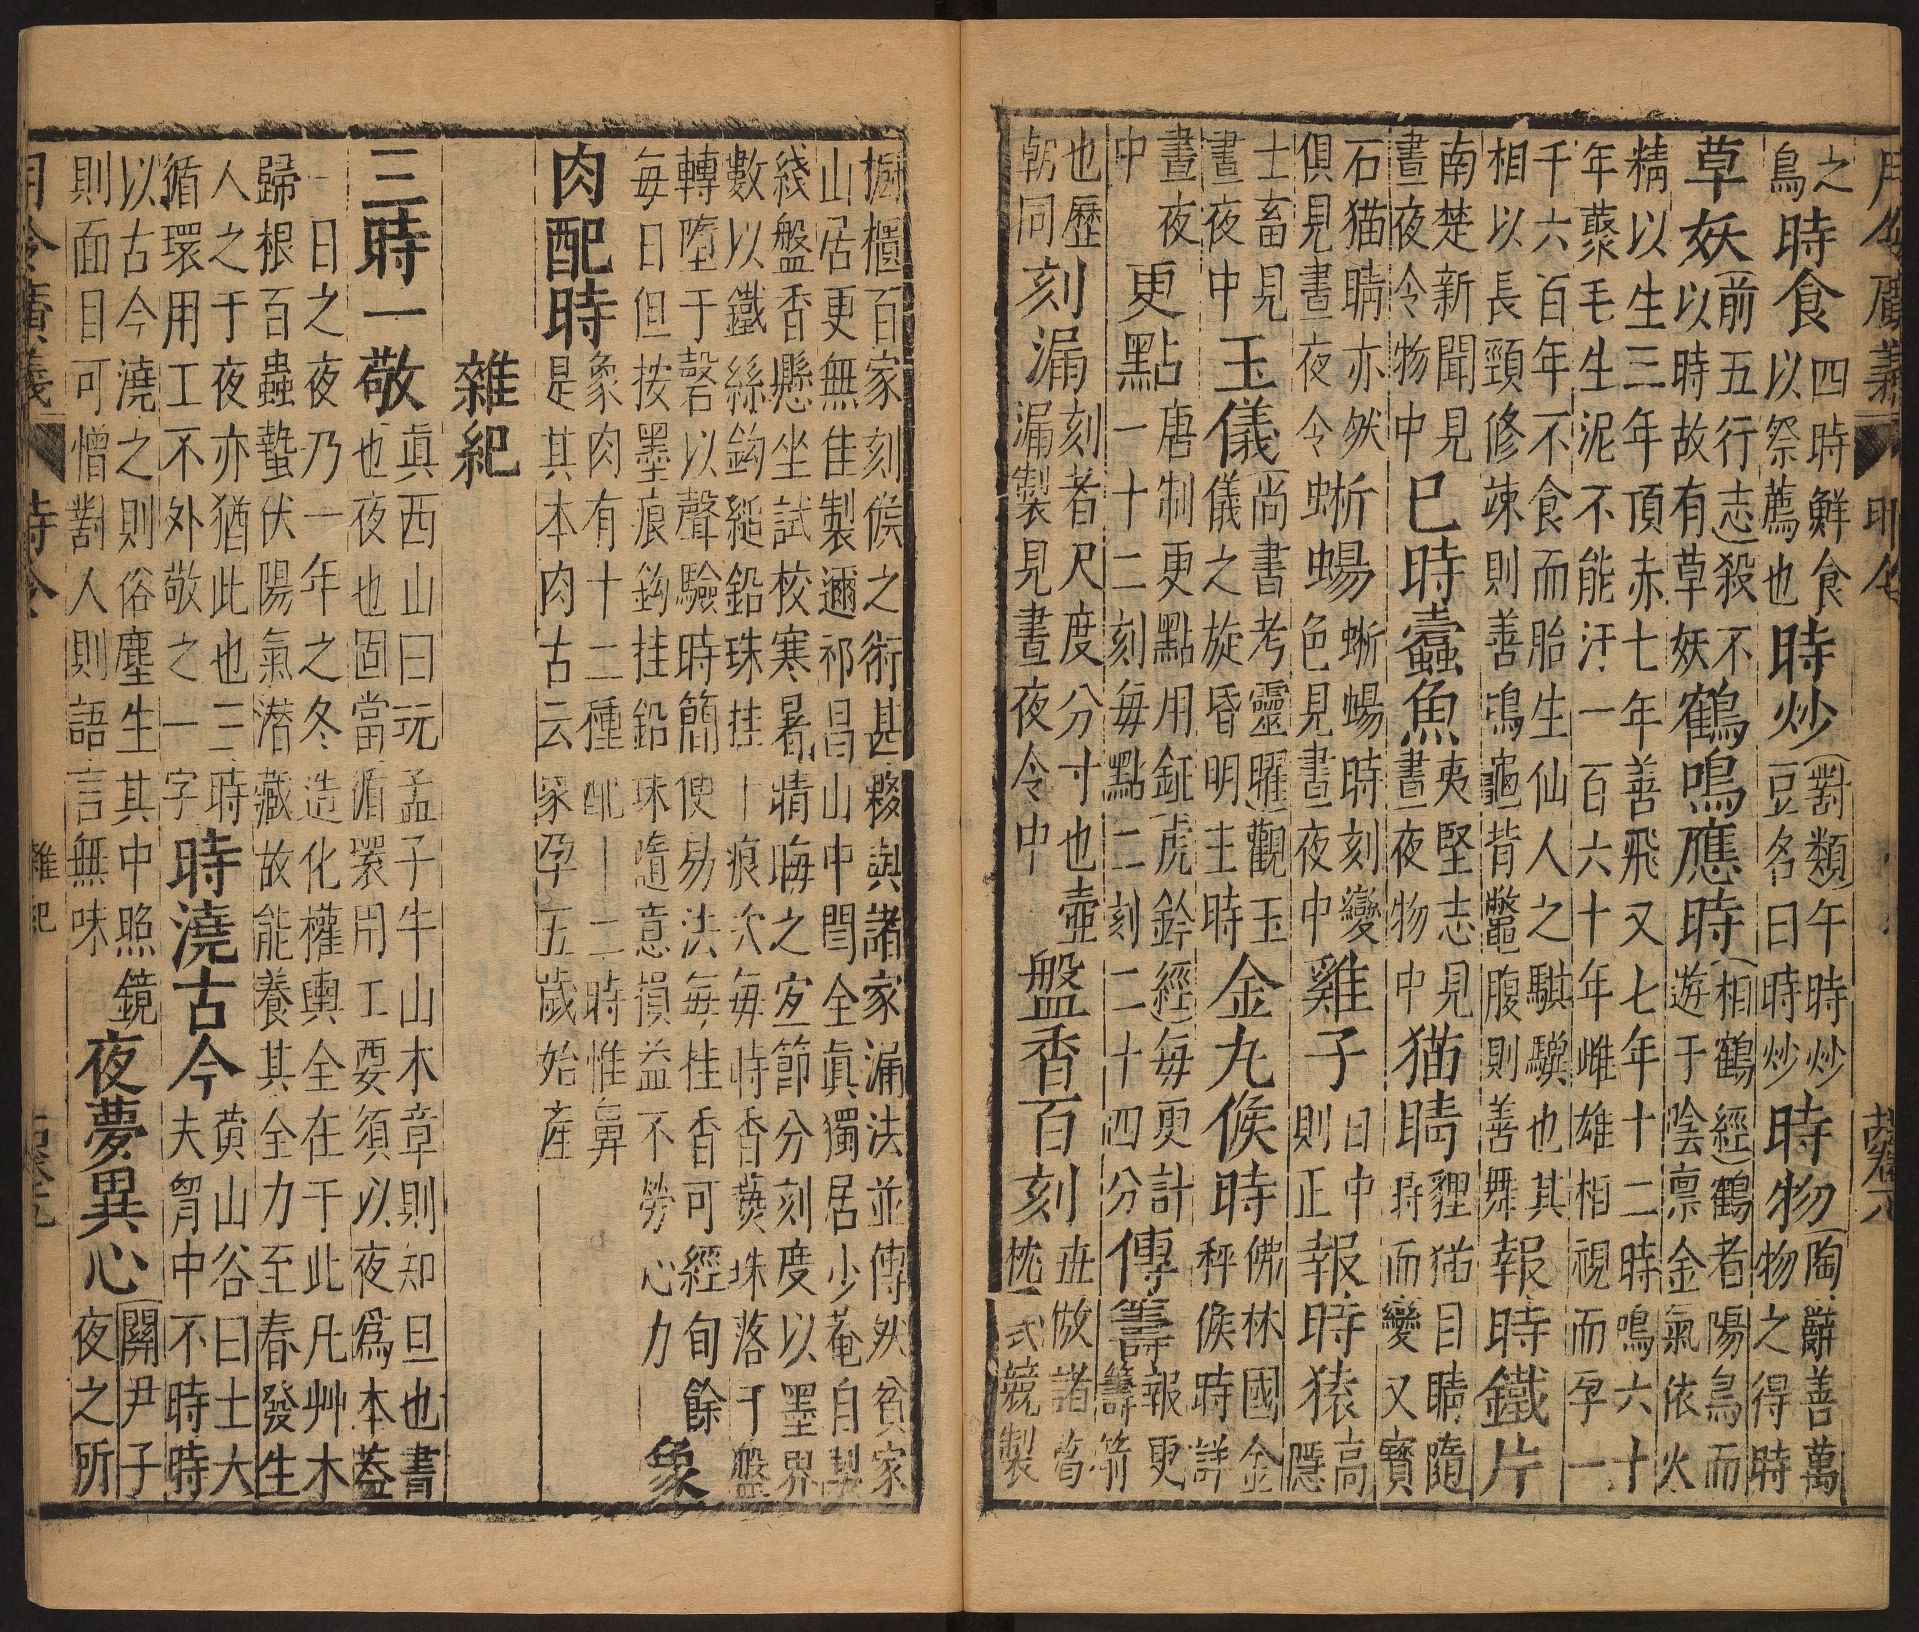 月令廣義 時令
之
鳥
時食
四時鮮食
以祭薦也
時炒
(對類)午時炒
豆名曰時炒
時物
(陶辭善萬
物之得時
草妖
(前五行志)殺不
以時故有草妖
鶴鳴應時
(相鶴經)鶴者陽鳥而
遊于陰禀金氣依火
精以生三年頂赤七年善飛又七年十二時鳴六十
年藂毛生泥不能汙一百六十年雌雄相視而孕一
千六百年不食而胎生仙人之騏驥也其
相以長頸修竦則善鳴龜背鼈腹則善舞
報時鐵片
南楚新聞見
晝夜令物中
巳時蠹魚
夷堅志見
晝夜物中
猫睛
貍猫目睛隨
時而變又寳
石猫睛亦然
俱見晝夜令
蜥蜴
蜥蜴時刻變
色見晝夜中
雞子
日中
則正
報時猿
高
隱
士畜見
晝夜中
玉儀
(尚書考靈曜)觀玉
儀之旋昏明主時
金九候時
佛林國金
秤候時詳
晝夜
中
更點
唐制更點用鉦(虎鈐經)每更計
一十二刻每點二刻二十四分
傳籌
報更
籌箭
也歷
朝同
刻漏
刻者尺度分寸也壺
漏製見晝夜令中
盤香百刻
世倣諸葛
枕式競製
櫃百家刻候之術甚夥與諸家漏法並傳然貧家
山居更無佳製邇祁昌山中閆全眞獨居少菴自製
綫盤香懸坐試校寒暑晴晦之宜節分刻度以墨界
數以鐵絲鈎縋鉛珠挂一痕次每時香爇珠落于盤
轉墮于磬以聲驗時簡便易法每桂香可經旬餘
每日但按墨痕鈎挂鉛珠隨意損益不勞心力
象
肉配時
象肉有十二種配十二時惟鼻
是其本肉古云象孕五歲始產
雜紀
三時一敬
眞西山曰玩孟子牛山木章則知旦也晝
也夜也固當循環用工要須以夜爲本葢
一日之夜乃一年之冬造化權輿全在于此凡艸木
歸根百蟲蟄伏陽氣潛藏故能養其全力至春發生
人之于夜亦猶此也三時
循環用工不外敬之一字
時澆古今
黄山谷曰士大
夫胷中不時時
以古今澆之則俗塵生其中照鏡
則面目可憎對人則語言無味
夜夢異心
(關尹子
夜之所
月令廣義 時令 雜紀